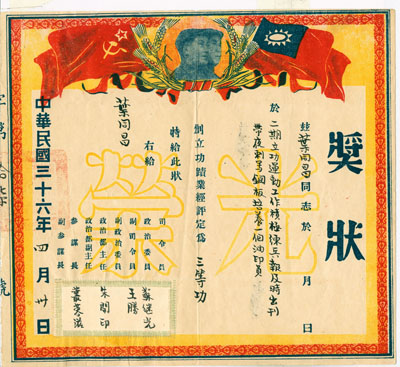 獎狀
茲葉同昌同志於 月 日
於二期立功運動工作積極練兵報及時出刊
帶夜刻寫鋼板培養一個油印員
創立功績業經評定為三等功
特給此狀
右給
葉同昌
光榮
司令員
政治委員
副司令員
副政治委員
政治部主任
政治部副主任
參謀長
副參謀長
王勝
朱開印
中華民國三十六年四月卅日
字第 號